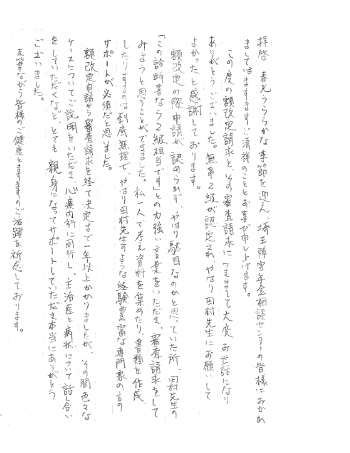 拝啓 春光うららかな季節を迎え、埼玉障害年金相談センターの皆様におかれ
ましてはますますご清祥のこととお喜び申し上げます。
この度の額改定請求と、その審査請求につきまして大変お世話になり
ありがとうございました。無事2級が認定され、やはり田村先生にお願いして
よかったと感謝しております。
額改定の際申請が認められず、やはり駄目なのかと思っていた所、田村先生の
「この診断書なら2級相当です」との力強いお言葉をいただき、審査請求をして
みようと思うことができました。私一人で考え資料を集めたり、書類を作成
したりするのは到底無理で、やはり田村先生のような経験豊富な専門家の方の
サポートが必須だと思いました。
額改定申請から審査請求を経て決定まで一年以上かかりましたが、その間色々な
ケースについてご説明をいただき、心療内科に同行し、主治医と病状について話し合い
をしていただくなど、とても親身になってサポートしていただき本当にありがとう
ございました。
末筆ながら皆様のご健康とますますのご活躍を祈念しております。